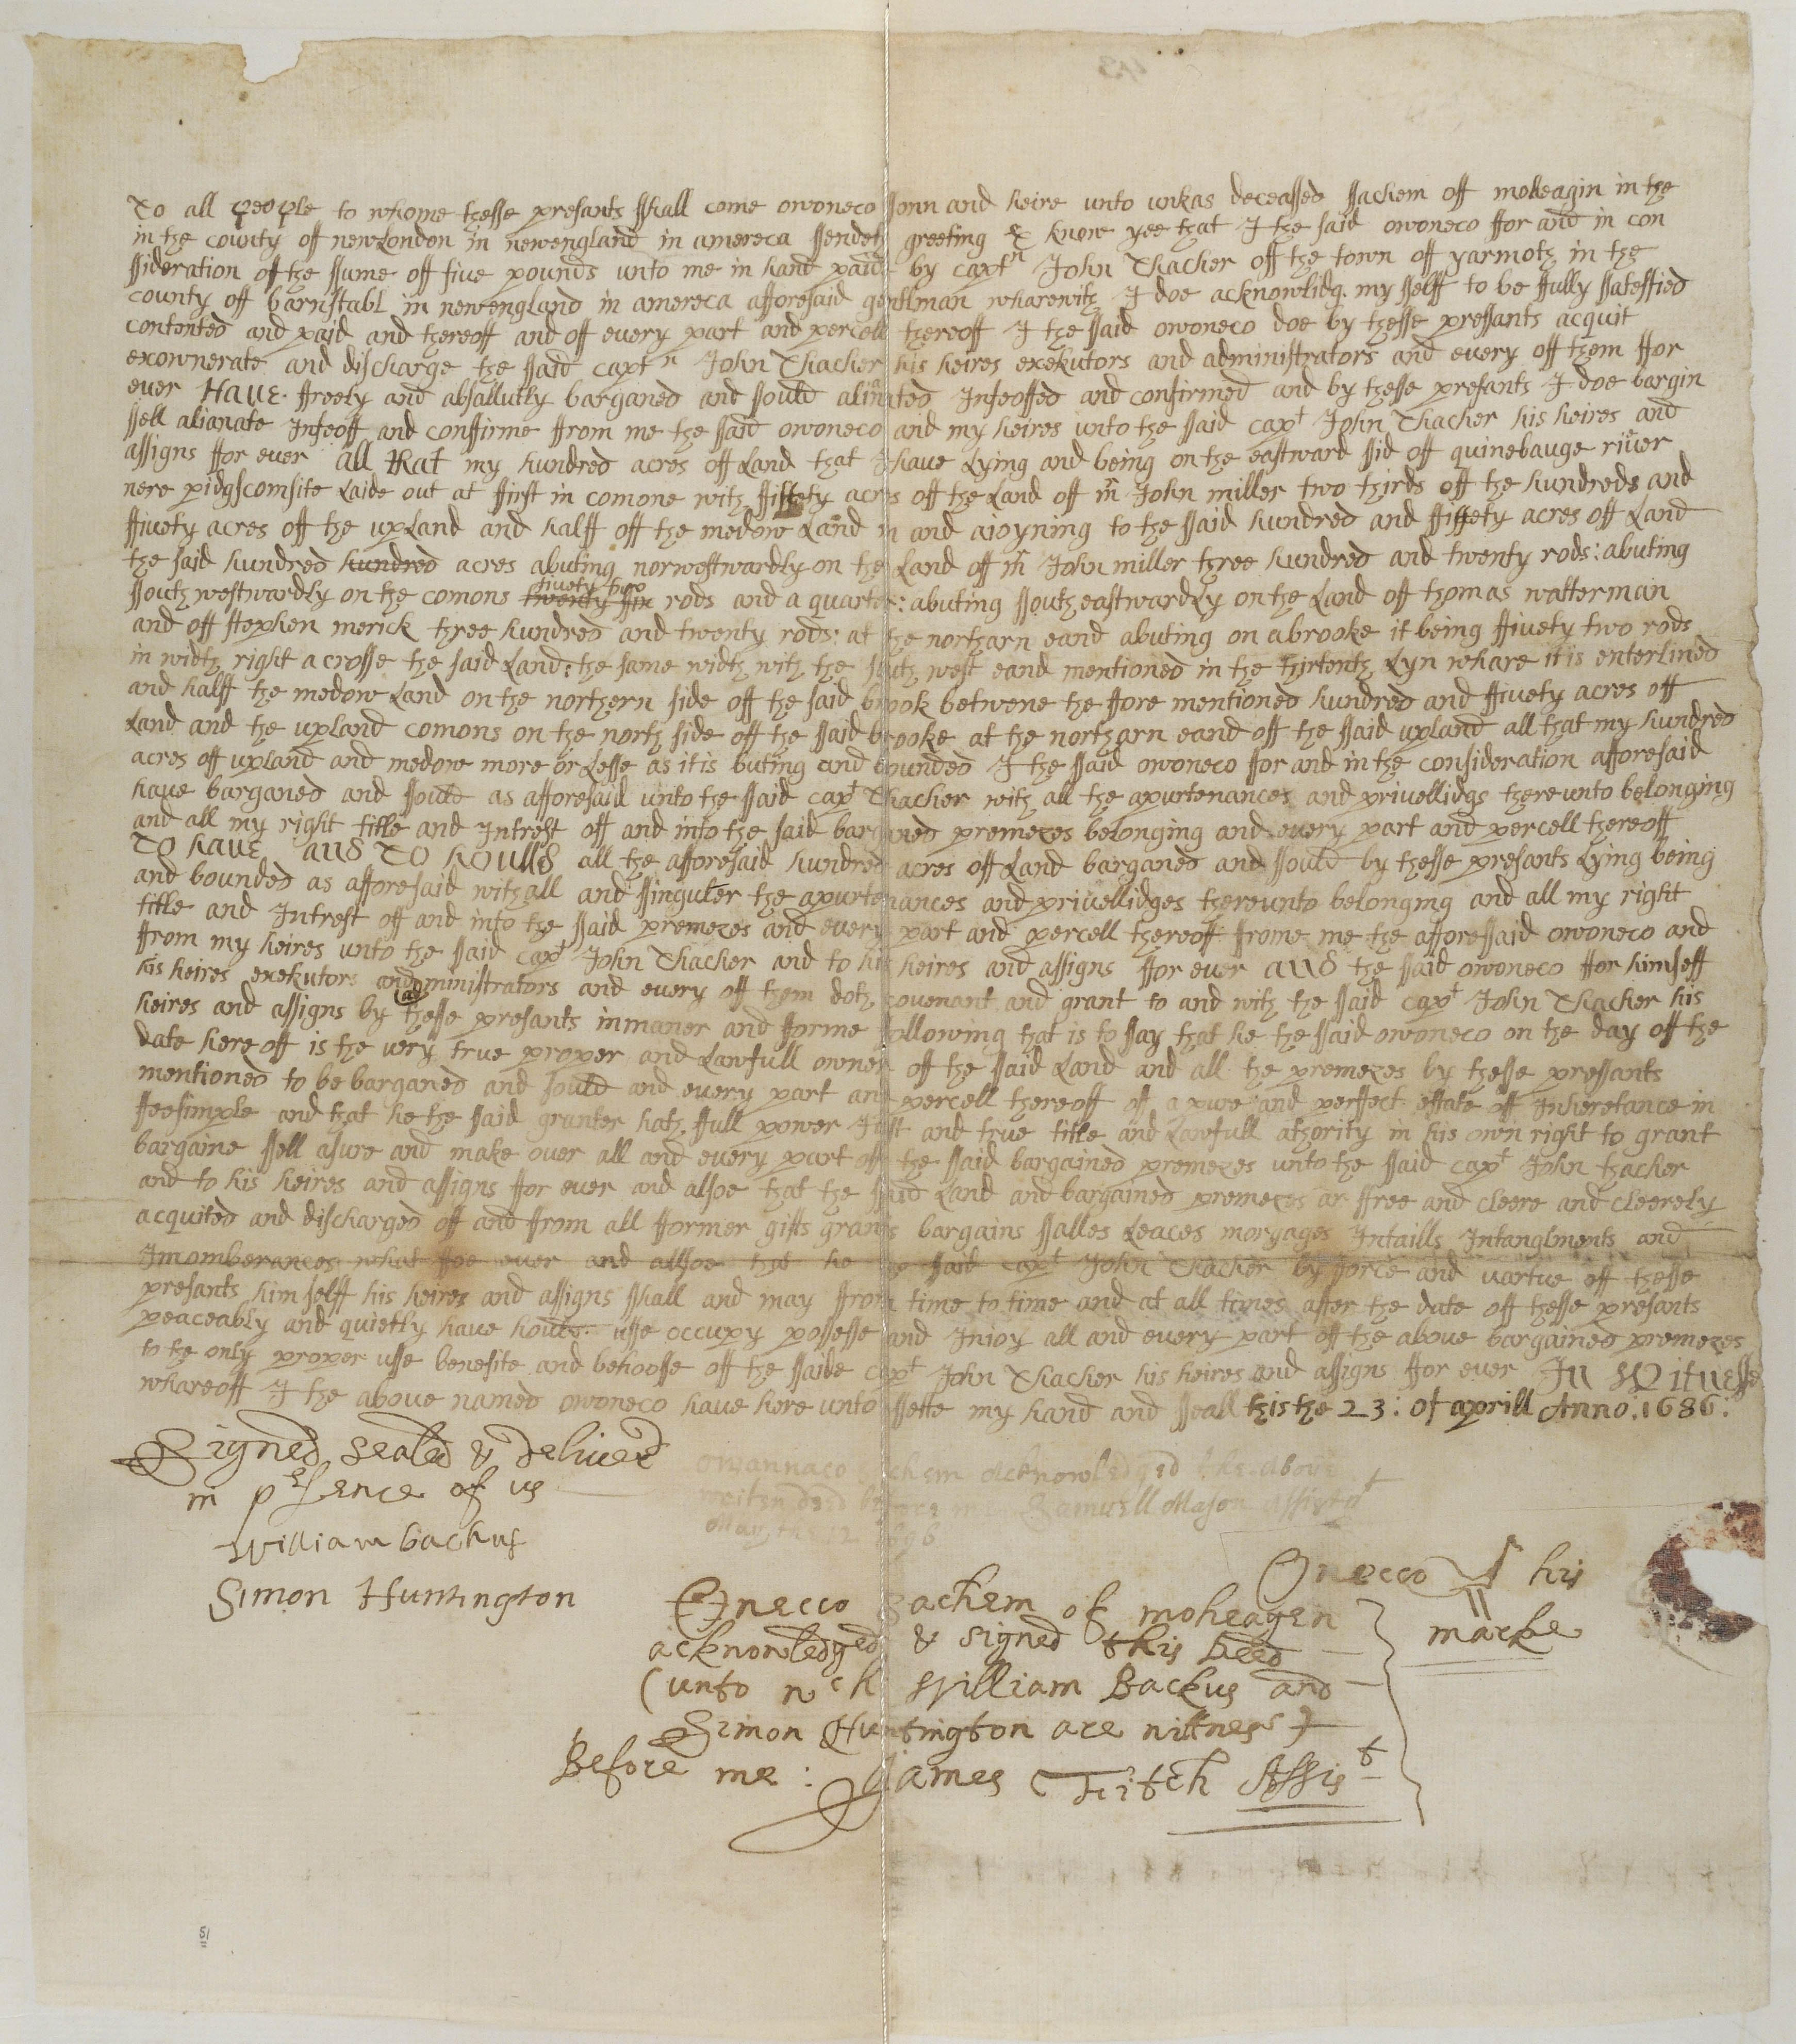 To all people to whome thesse presants sshall come owoneco ssonn and heire unto unkas deceassed ssachem off moheagin in the
in the county off newLondon in newengland in amereca ssendeth greeting & know yee that I the said owoneco ffor and in con
ssideration off the ssume off five pounds unto me in hand paid by captn John Thacher off the town off yarmoth in the
county off barnstabl in newengland in amereca afforesaid gentlman wharewith I doe acknowlidg my sselff to be ffully ssateffied
contented and paid and thereoff and off every part and percell thereoff I the ssaid owoneco doe by thesse pressants acquit
exownerate and discharge the ssaid captn John Thacher his heires exekutors and administrators and every off them ffor
ever Have ffreely and absallutly barganed and ssould alinated Infeoffed and confirmed and by thesse presants I doe bargin
ssell alianate Infeoff and conffirme ffrom me the ssaid owoneco and my heires unto the ssaid capt John Thacher his heires and
assigns ffor ever all that my hundred acres off Land that I have Lying and being on the eastward ssid off quinebauge river
nere pidgscomsite Laide out at ffirst in comone with ffiffety acres off the Land off mr John miller two thirds off the hundreds and
ffivety acres off the upLand and halff off the medow Land in and aioyning to the ssaid hundred and ffiffety acres off Land
the said hundred hundred acres abuting norwestwardly on the Land off mr John miller three hundred and twenty rods: abuting
ssouthwestwardly on the comons twenty ssix fivety two rods and a quarter: abuting ssoutheastwardly on the Land off thomas watterman
and off stephen merick three hundred and twenty rods: at the northarn eand abuting on a brooke it being ffivety two rods
in width right acrosse the said Land: the same width with the south west eand mentioned in the thirtenth Lyn whare it is enterlined
and halff the medow Land on the northern side off the said brook betwene the ffore mentioned hundred and ffivety acres off
Land and the upland comons on the north side off the ssaid brooke at the northarn eand off the ssaid upland all that my hundred
acres off upland and medow more or Lesse as it is buting and bounded I the ssaid owoneco ffor and in the consideration afforesaid
have barganed and ssould as afforesaid unto the ssaid capt Thacher with all the apurtenances and privellidgs thereunto belonging
and all my right title and Intrest off and into the said barganed premezes belonging and every part and percell thereoff
To have and To hould all the afforesaid hundred acres off Land barganed and ssould by thesse presants Lying being
and bounded as afforesaid with all and ssinguler the apurtenances and privellidges thereunto belonging and all my right
title and Intrest off and into the ssaid premezes and every part and percell thereoff ffrome me the afforessaid owoneco and
ffrom my heires unto the ssaid capt John Thacher and to his heires and assigns ffor ever and the ssaid owoneco ffor himseff
his heires exekutors and administrators and every off them doth covenant and grant to and with the ssaid capt John Thacher his
heires and assigns by thesse presants in maner and fforme ffollowing that is to ssay that he the ssaid owoneco on the day off the
date hereoff is the very true proper and Lawfull owner off the ssaid Land and all the premezes by thesse pressants
mentioned to be barganed and ssould and every part and percell thereoff off a pure and perffect estate off Inheretance in
ffeesimple and that he the said grunter hath ffull power Just and true title and Lawfull athority in his own right to grant
bargaine ssell asure and make over all and every part off the ssaid bargained premezes unto the ssaid capt John thacher
and to his heires and assigns ffor ever and alsoe that the ssaid Land and bargained premezes ar ffree and cleere and cleerely
acquited and discharged off and ffrom all fformer gifts grants bargains ssalles Leaces morgages Intaills Intanglments and
Incomberances what ssoe ever and allsoe that he the ssaid capt John Thacher by fforce and vartue off thesse
presants him sselff his heires and assigns sshall and may ffrom time to time and at all times after the date off thesse presants
peaceably and quietly have hould usse occupy possesse and Inioy all and every part off the above bargained premezes
to the only proper usse benefite and behoosse off the ssaide capt John Thacher his heires and assigns ffor ever In Witnesse
whareoff I the above named owoneco have here unto ssette my hand and sseall this the 23: of aprill Anno. 1686:
Signed sealed & deliverd
in presence of us
William backus
Simon Huntington
owannaco sachem acknowledged the above
writen deed before me Samuell Mason assistt
May the 12
Onecco his
marke
Onecco Sachem of moheagen
acknowledged & signed this deed
(unto wch William Backus and
Simon Huntington are wittness)
Before me: James Fitch Assist
51